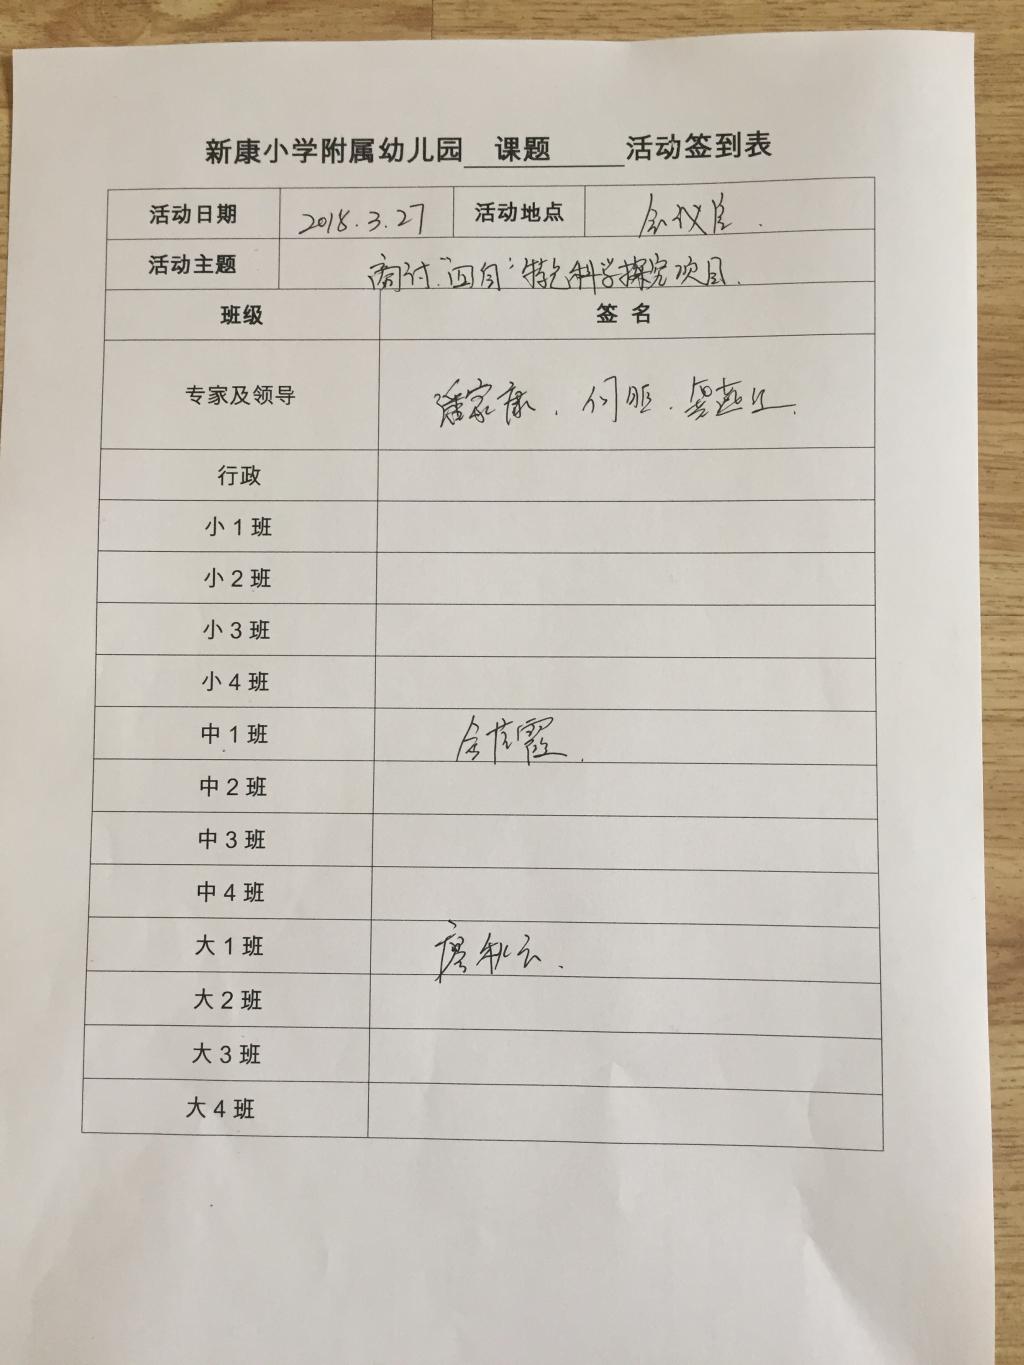 新康小学附属幼儿园 课题 活动签到表
活动日期 2018.3.27 活动地点 会议室.
活动主题 商讨"四自"特色科学探究项目.
班级 签 名
专家及领导 潘家康.何
行政
小1班
小2班
小3班
小4班
中1班 霞.
中2班
中3班
中4班
大1班 廖秋云.
大2班
大3班
大4班